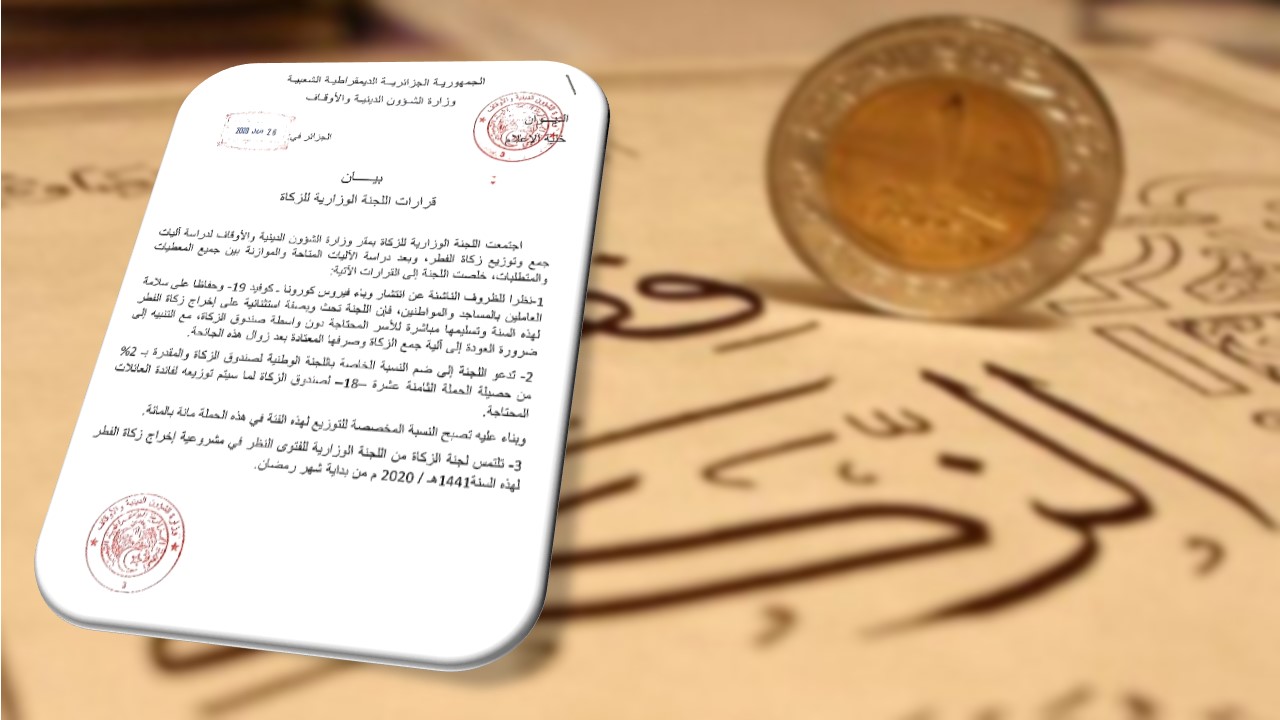 الجمهورية الجزائرية الديمقراطية الشعبية
وزارة الشؤون الدينية والأوقاف
الديوان
خلية الإعلام
الجزائر في:
بيـــان
قرارات اللجنة الوزارية للزكاة
اجتمعت اللجنة الوزارية للزكاة بمقر وزارة الشؤون الدينية والأوقاف لدراسة آليات
جمع وتوزيع زكاة الفطر، وبعد دراسة الآليات المتاحة والموازنة بين جميع المعطيات
والمتطلبات، خلصت اللجنة إلى القرارات الآتية:
1-نظرا للظروف الناشئة عن انتشار وباء فيروس كورونا - كوفيد 19- وحفاظا على سلامة
العاملين بالمساجد والمواطنين، فإن اللجنة تحث وبصفة استثنائية على إخراج زكاة الفطر
لهذه السنة وتسليمها مباشرة للأسر المحتاجة دون واسطة صندوق الزكاة، مع التنبيه إلى
ضرورة العودة إلى آلية جمع الزكاة وصرفها المعتادة بعد زوال هذه الجائحة.
2- تدعو اللجنة إلى ضم النسبة الخاصة باللجنة الوطنية لصندوق الزكاة والمقدرة بـ 2%
من حصيلة الحملة الثامنة عشرة –18– لصندوق الزكاة لما سيتم توزيعه لفائدة العائلات
المحتاجة.
وبناء عليه تصبح النسبة المخصصة للتوزيع لهذه الفئة في هذه الحملة مائة بالمائة.
3- تلتمس لجنة الزكاة من اللجنة الوزارية للفتوى النظر في مشروعية إخراج زكاة الفطر
لهذه السنة1441هـ / 2020 م من بداية شهر رمضان.